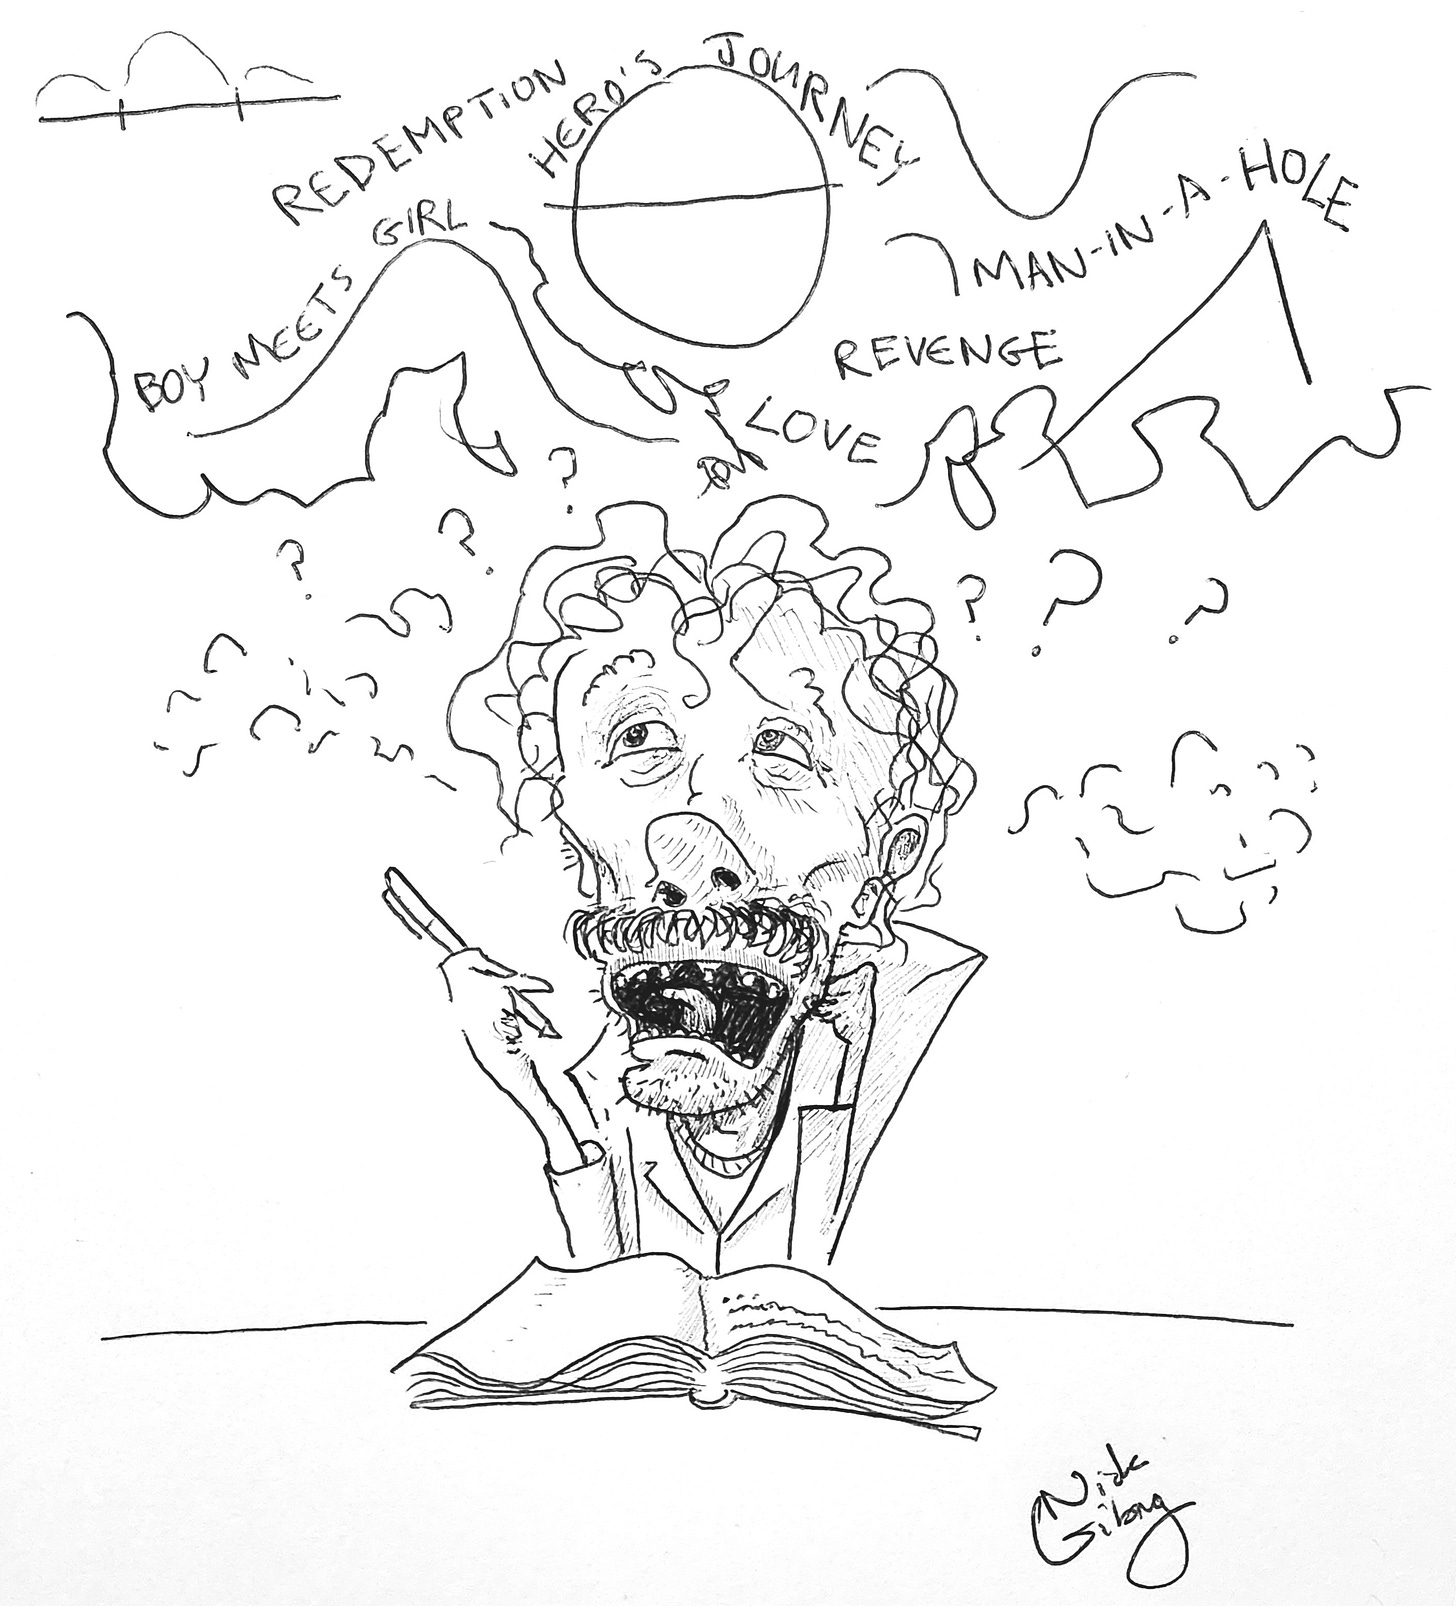 REDEMPTION
HERO'S JOURNEY
BOY MEETS GIRL
MAN-IN-A-HOLE
REVENGE
LOVE
? ? ? ? ? ?
Nick